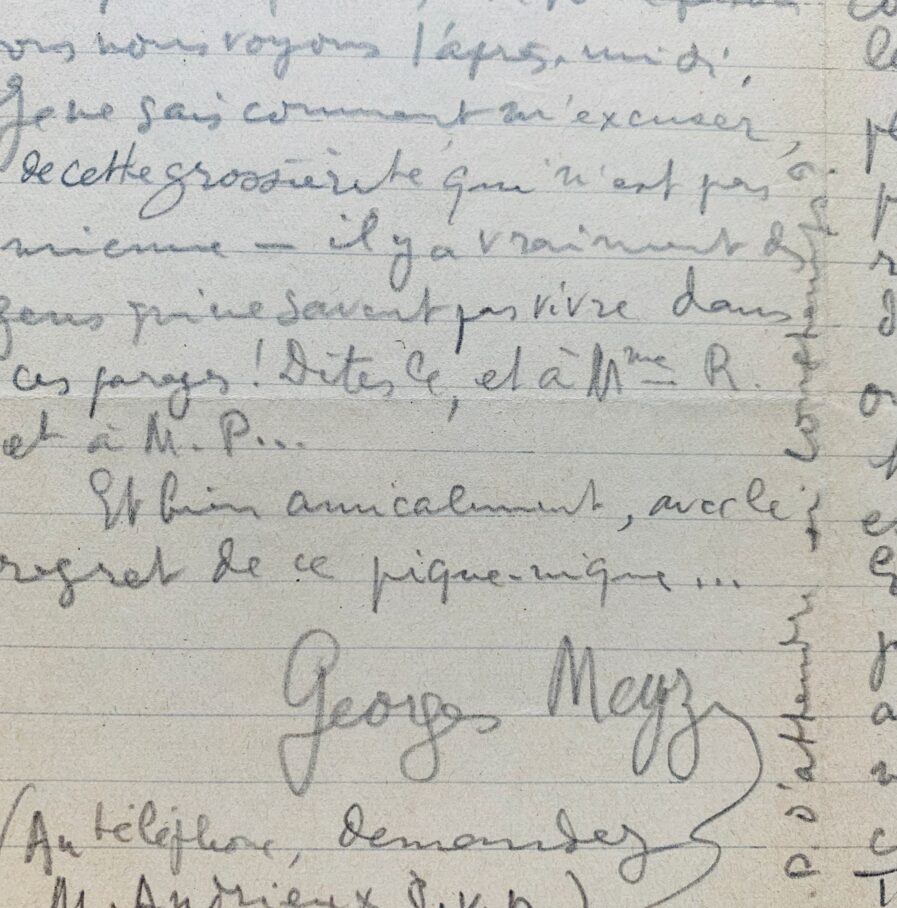 nous voyons l'après-midi,
Je ne sais comment m'excuser,
de cette grossièreté qui n'est pas
mienne — il y a vraiment des
gens qui ne savent pas vivre dans
ces parages! Dites le, et à Mme R.
et à M. P...
Et bien amicalement, avec le
regret de ce pique-nique...
Georges
(Au téléphone, demandez
M. Andrieux S.v.p.)